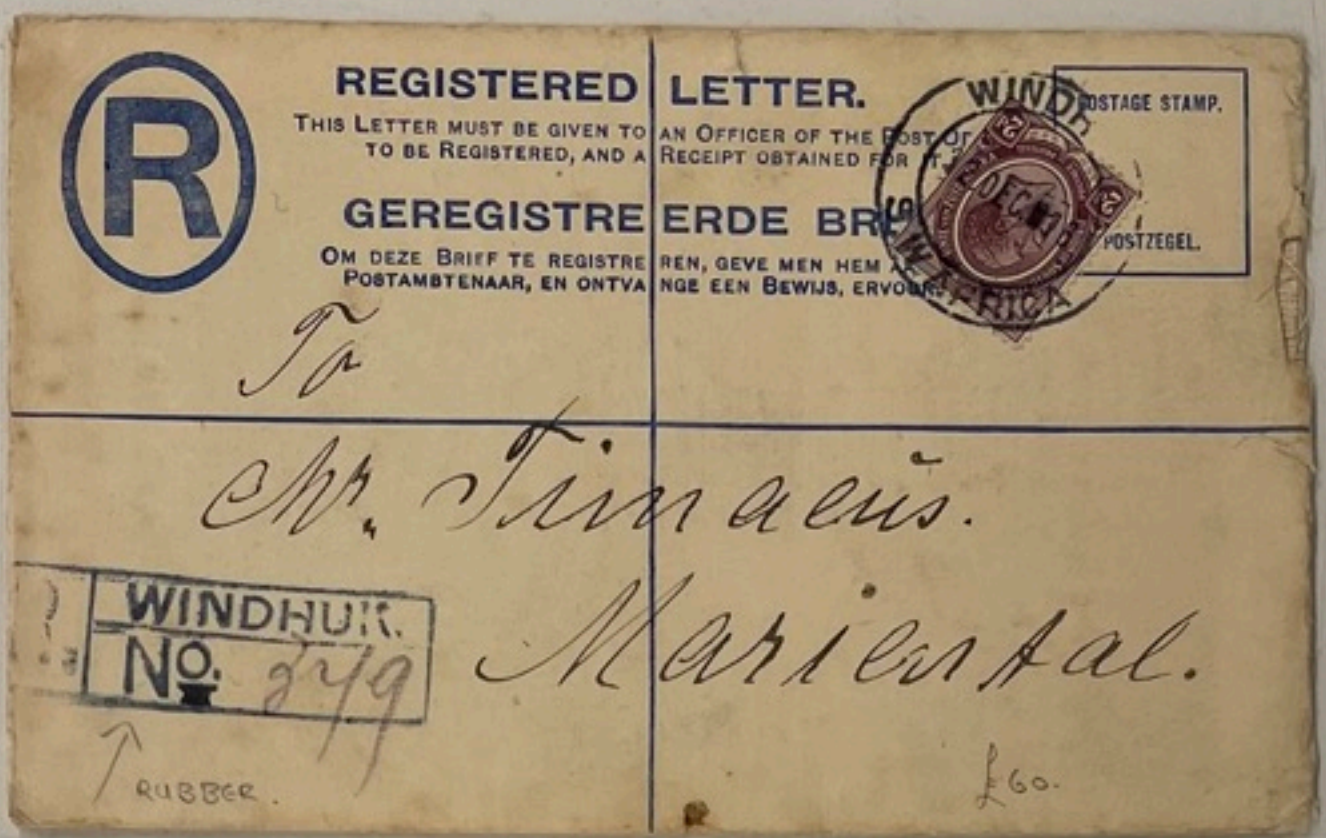 R
REGISTERED LETTER.
THIS LETTER MUST BE GIVEN TO AN OFFICER OF THE POST
TO BE REGISTERED, AND A RECEIPT OBTAINED FOR IT.
GEREGISTREERDE BR
OM DEZE BRIEF TE REGISTREREN, GEVE MEN HEM
POSTAMBTENAAR, EN ONTVANGE EEN BEWIJS, ERVOOR.
POSTAGE STAMP.
POSTZEGEL.
WINDH
DEC
S.W. AFRICA
To
Mr. Timaeus.
Mariental.
WINDHUK.
No. 349
RUBBER.
£60.